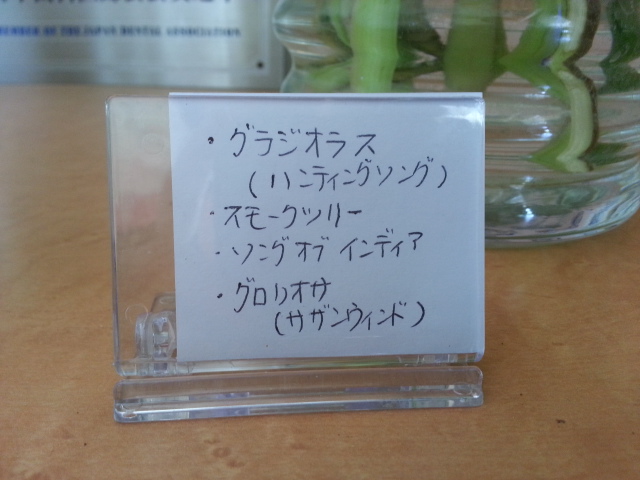 MEMBER OF THE JAPAN DENTAL ASSOCIATION
・グラジオラス
(ハンティングソング)
・スモークツリー
・ソングオブインディア
・グロリオサ
(サザンウィンド)